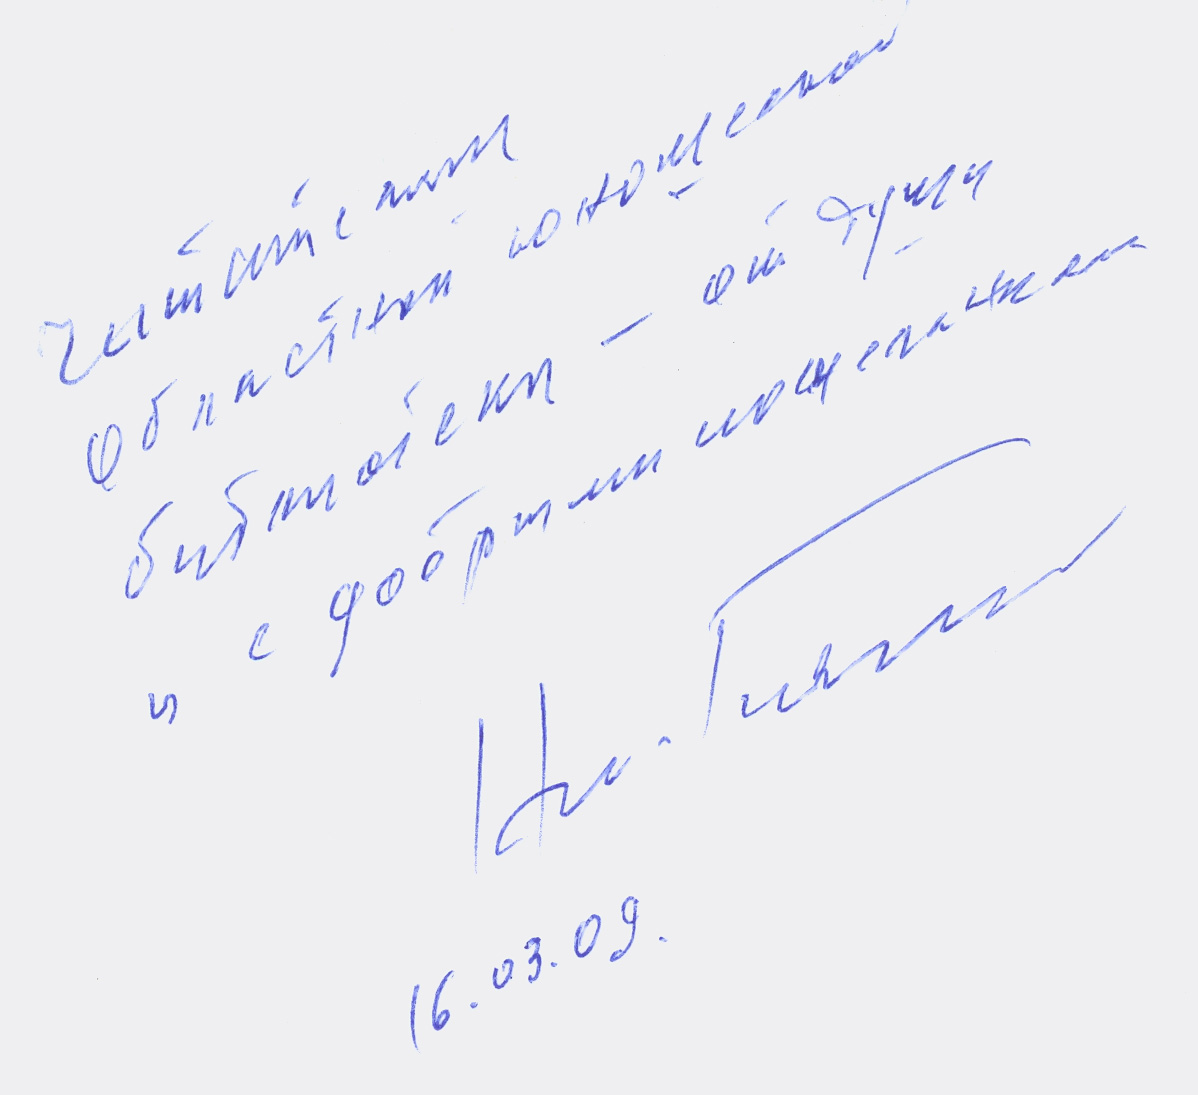 Читателям
областной юношеской
библиотеки — от души
и с добрыми пожеланиями
16.03.09.